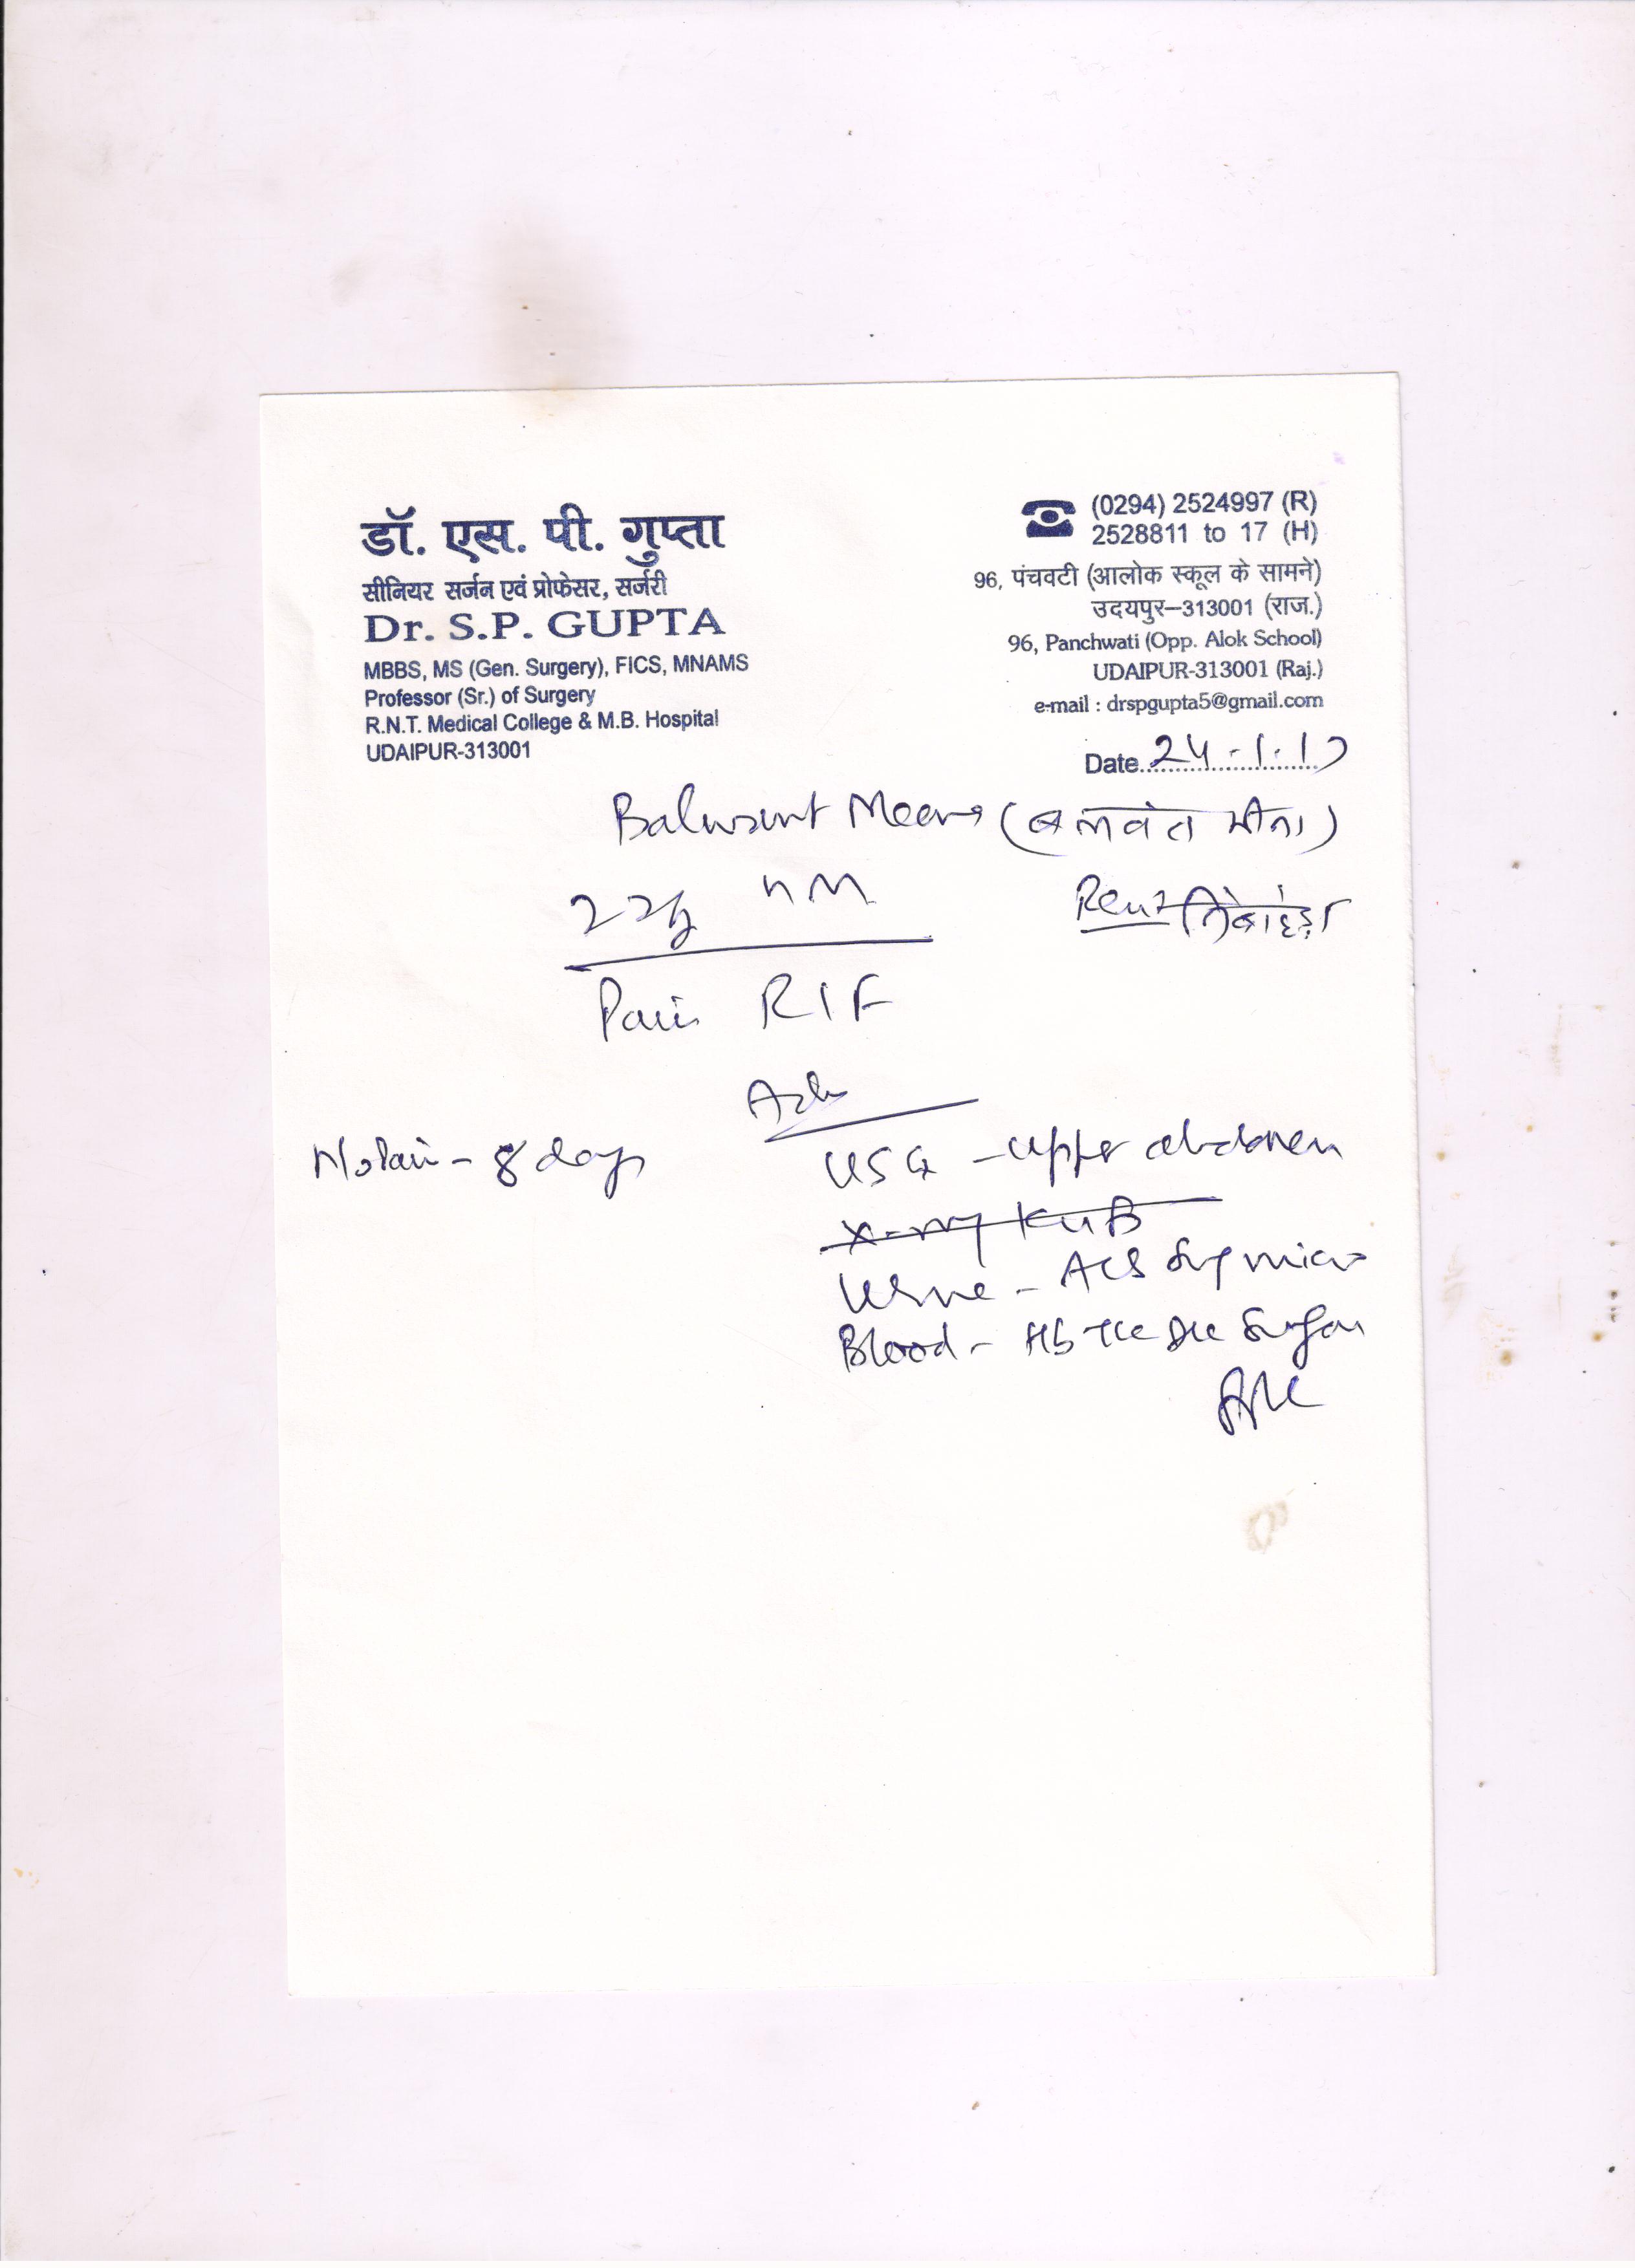 डॉ. एस. पी. गुप्ता
सीनियर सर्जन एवं प्रोफेसर, सर्जरी
Dr. S.P. GUPTA
MBBS, MS (Gen. Surgery), FICS, MNAMS
Professor (Sr.) of Surgery
R.N.T. Medical College & M.B. Hospital
UDAIPUR-313001
(0294) 2524997 (R)
2528811 to 17 (H)
96, पंचवटी (आलोक स्कूल के सामने)
उदयपुर–313001 (राज.)
96, Panchwati (Opp. Alok School)
UDAIPUR-313001 (Raj.)
e-mail : drspgupta5@gmail.com
Date 24.1.17
Balwant Meena (बलवंत मीना)
Pain RIF
Adv
8 days
USG - upper abdomen
X-ray KUB
Urine - micro
Blood - Hb TLC DLC Sugar